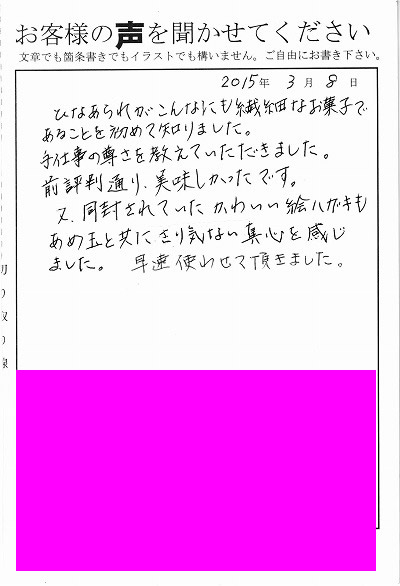 お客様の声を聞かせてください
文章でも箇条書きでもイラストでも構いません。ご自由にお書き下さい。
2015年 3月 8日
ひなあられがこんなにも繊細なお菓子で
あることを初めて知りました。
手仕事の尊さを教えていただきました。
前評判通り、美味しかったです。
又、同封されていたかわいい絵ハガキも
あめ玉と共に、さり気ない真心を感じ
ました。 早速使わせて頂きました。
切り取り線